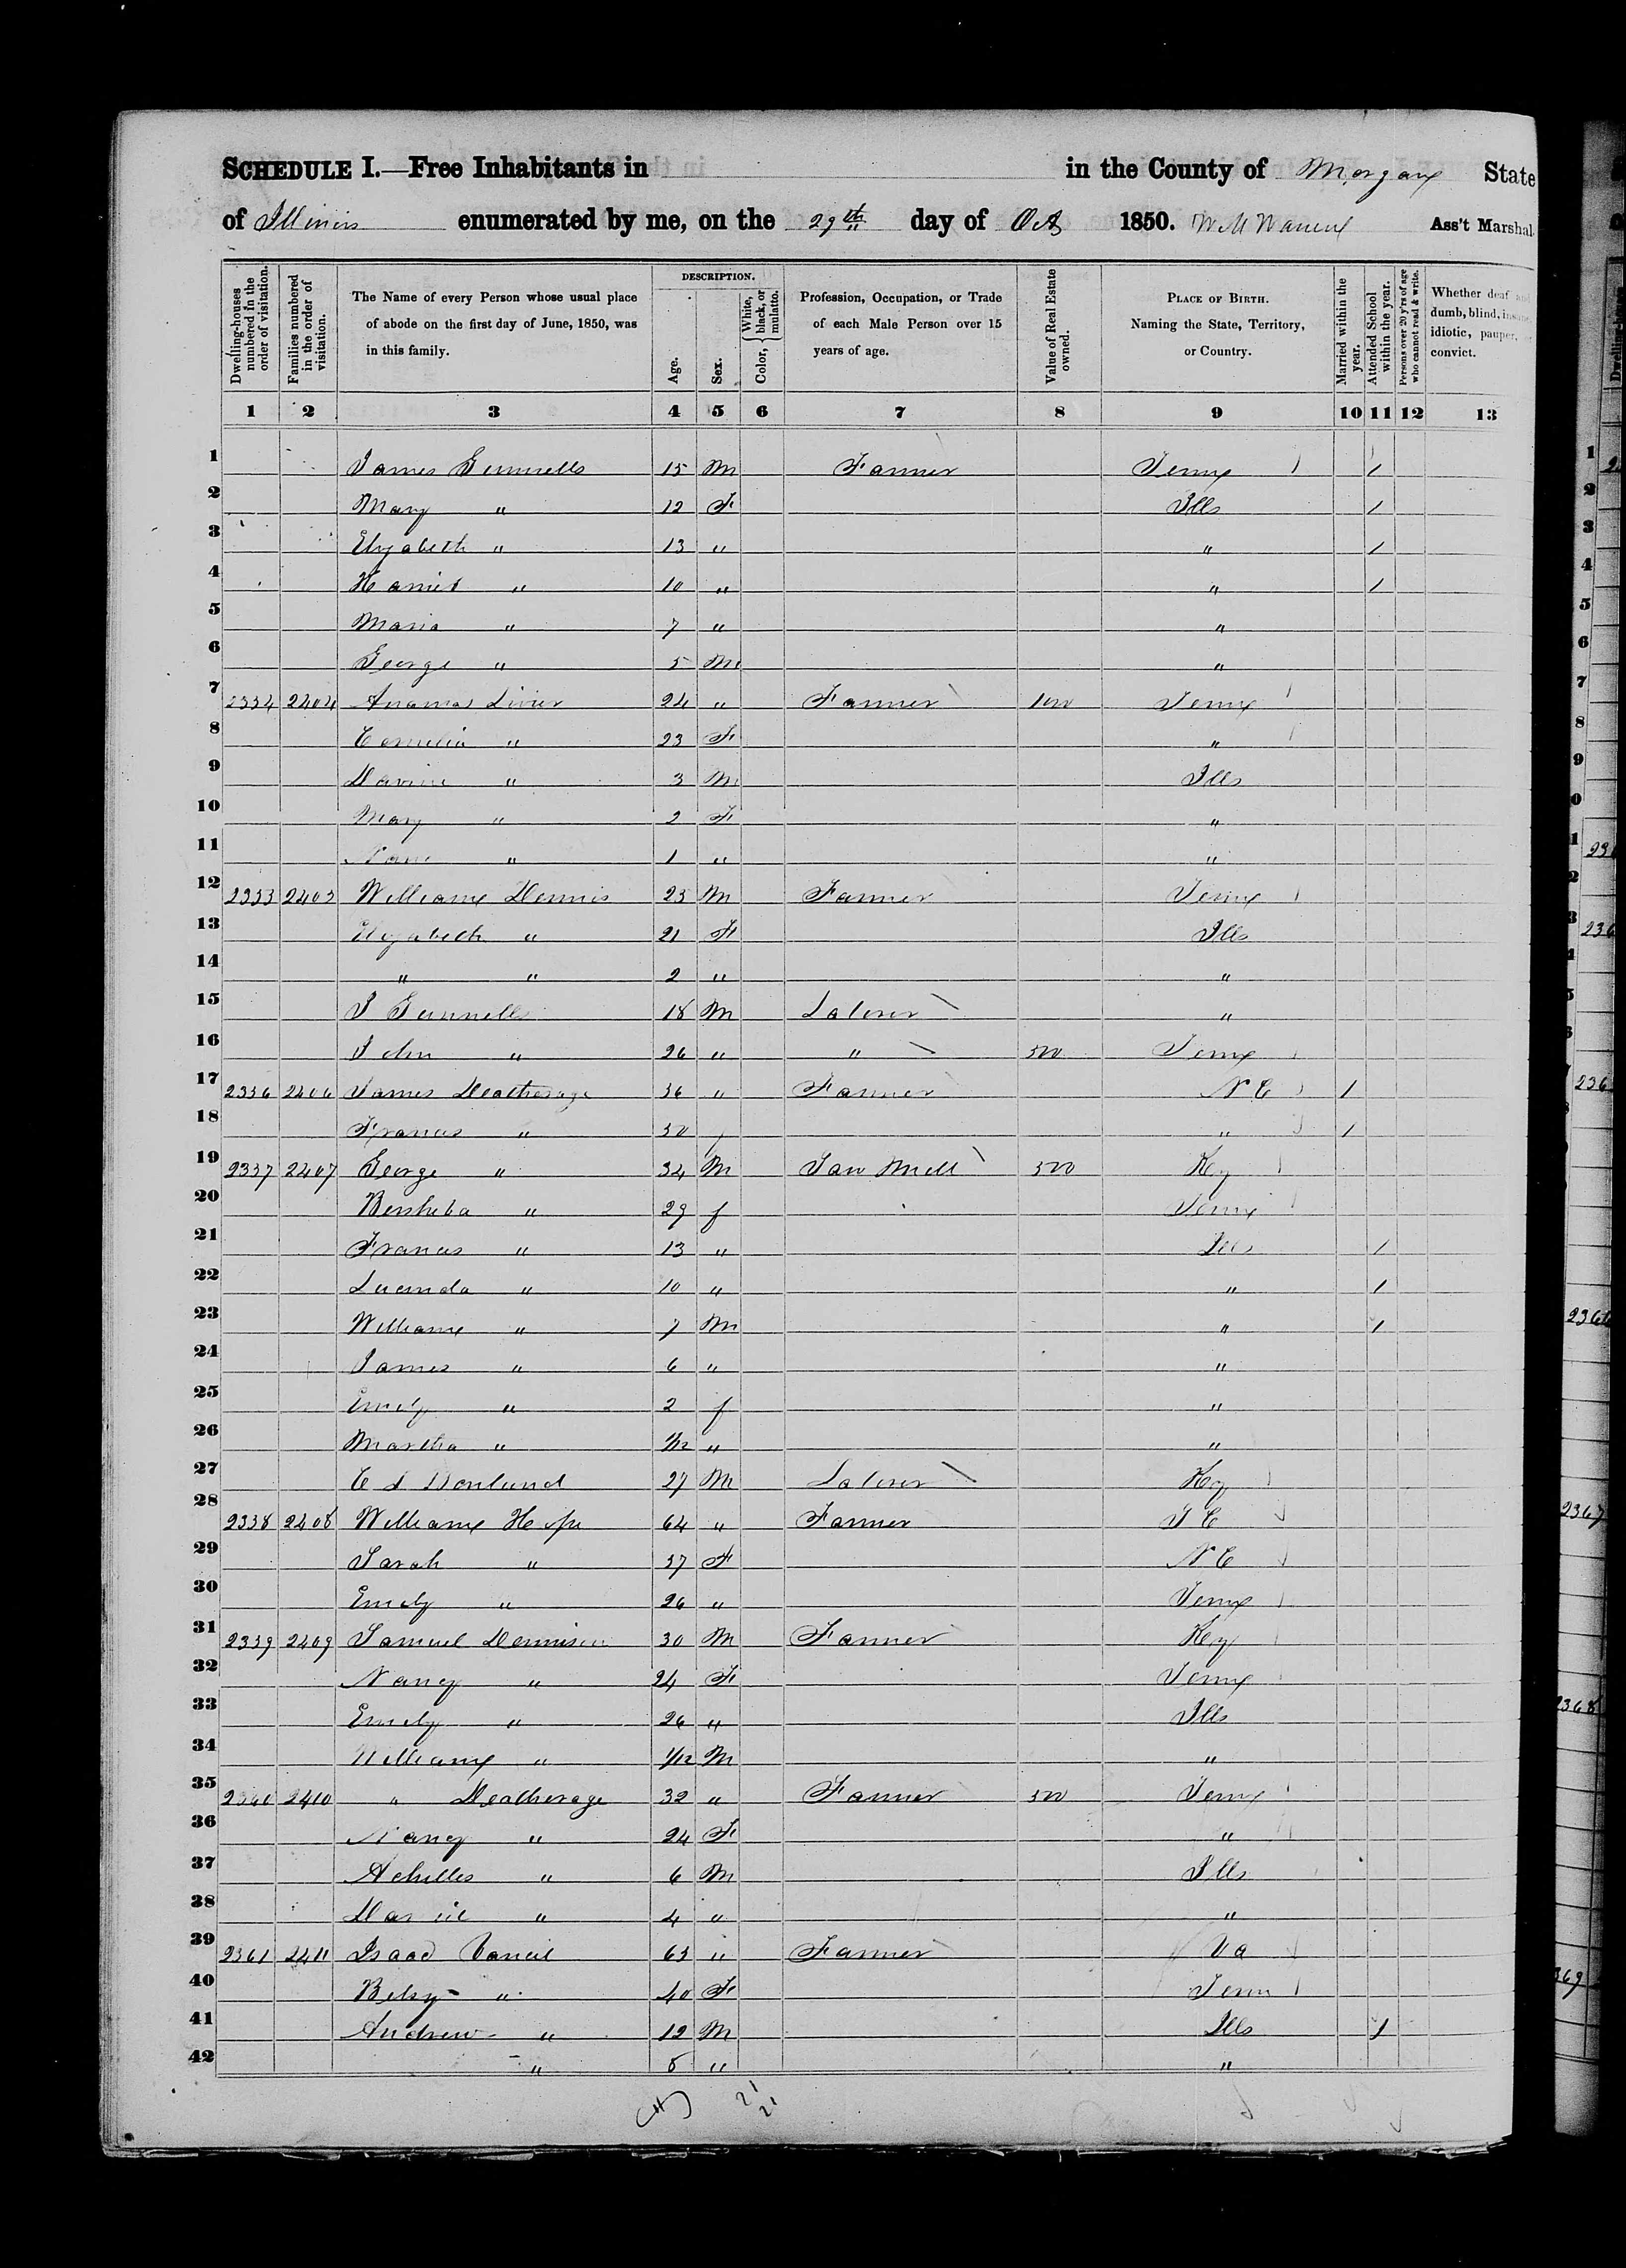 SCHEDULE I.—Free Inhabitants in in the County of Morgan State
of Illinois enumerated by me, on the 29th day of Oct 1850. Ass't Marshal.
Dwelling-houses numbered in the order of visitation.
Families numbered in the order of visitation.
The Name of every Person whose usual place of abode on the first day of June, 1850, was in this family.
DESCRIPTION.
Age.
Sex.
Color, { White, black, or mulatto.
Profession, Occupation, or Trade of each Male Person over 15 years of age.
Value of Real Estate owned.
PLACE OF BIRTH. Naming the State, Territory, or Country.
Married within the year.
Attended School within the year.
Persons over 20 y'rs of age who cannot read & write.
Whether deaf and dumb, blind, insane, idiotic, pauper, or convict.
1 2 3 4 5 6 7 8 9 10 11 12 13
1 James 15 M Farmer Tenn 1
2 Mary " 12 F Ills 1
3 Elizabeth " 13 " " 1
4 Harriet " 10 " " 1
5 Maria " 7 " "
6 George " 5 M "
7 2404 24 " Farmer Tenn
8 Cornelia " 23 F "
9 " 3 M Ills
10 Mary " 2 F "
11 " 1 " "
12 William Dennis 25 M Farmer Tenn
13 Elizabeth " 21 F Ills
14 " " 2 " "
15 J 18 M Laborer "
16 John " 26 " " 500 Tenn
17 2336 2406 James Deatherage 36 " Farmer N C 1
18 Frances " 30 f " 1
19 2337 2407 George " 34 M Saw Mill 500 Ky
20 Bersheba " 29 f Tenn
21 Frances " 13 " Ills 1
22 Lucinda " 10 " " 1
23 William " 7 M " 1
24 James " 6 " "
25 Emily " 2 f "
26 Martha " 1/12 " "
27 27 M Laborer Ky
28 2338 2408 William 64 " Farmer S C
29 Sarah " 37 F N C
30 Emily " 26 " Tenn
31 2339 2409 Samuel Dennison 30 M Farmer Ky
32 Nancy " 24 F Tenn
33 Emily " 26 " Ills
34 William " 1/12 M "
35 2410 " Deatherage 32 " Farmer 500 Tenn
36 Nancy " 24 F "
37 Achilles " 6 M Ills
38 " 4 " "
39 2361 2411 Isaac Vancil 63 " Farmer Va
40 Betsy " 40 F Tenn
41 Andrew " 12 M Ills 1
42 " 8 " "
21
21